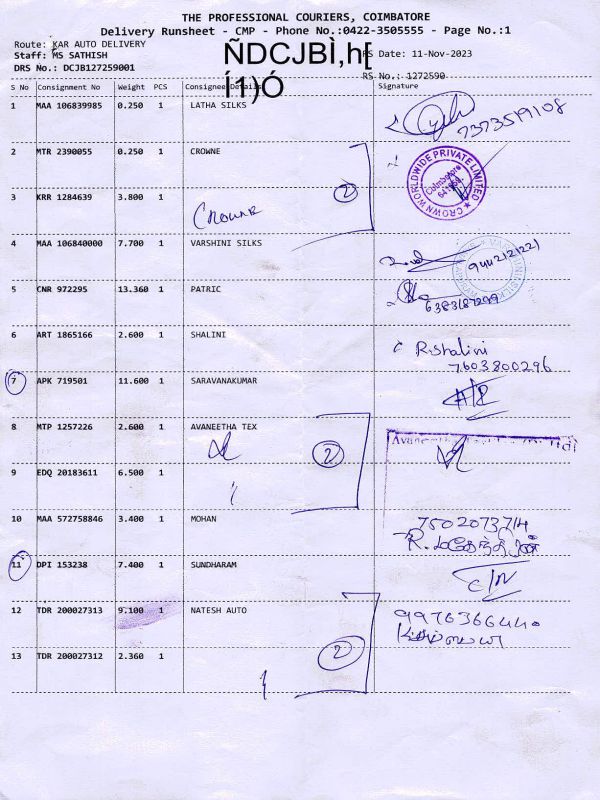 THE PROFESSIONAL COURIERS, COIMBATORE
Delivery Runsheet - CMP - Phone No.:0422-3505555 - Page No.:1
Route: KAR AUTO DELIVERY
Staff: MS SATHISH
RS Date: 11-Nov-2023
DRS No.: DCJB127259001
ÑDCJBÌ,h[
Í1)Ó
RS No.: 1272590
S No Consignment No Weight PCS Consignee Details Signature
1 MAA 106839985 0.250 1 LATHA SILKS
7373519108
2 MTR 2390055 0.250 1 CROWNE
CROWN WORLDWIDE PRIVATE LIMITED
Coimbatore
3 KRR 1284639 3.800 1
2
4 MAA 106840000 7.700 1 VARSHINI SILKS
5 CNR 972295 13.360 1 PATRIC
6383187299
6 ART 1865166 2.600 1 SHALINI
R.Shalini
7603800296
7 APK 719501 11.600 1 SARAVANAKUMAR
8 MTP 1257226 2.600 1 AVANEETHA TEX
2
9 EDQ 20183611 6.500 1
10 MAA 572758846 3.400 1 MOHAN
7502073714
11 DPI 153238 7.400 1 SUNDHARAM
12 TDR 200027313 9.100 1 NATESH AUTO
13 TDR 200027312 2.360 1
2